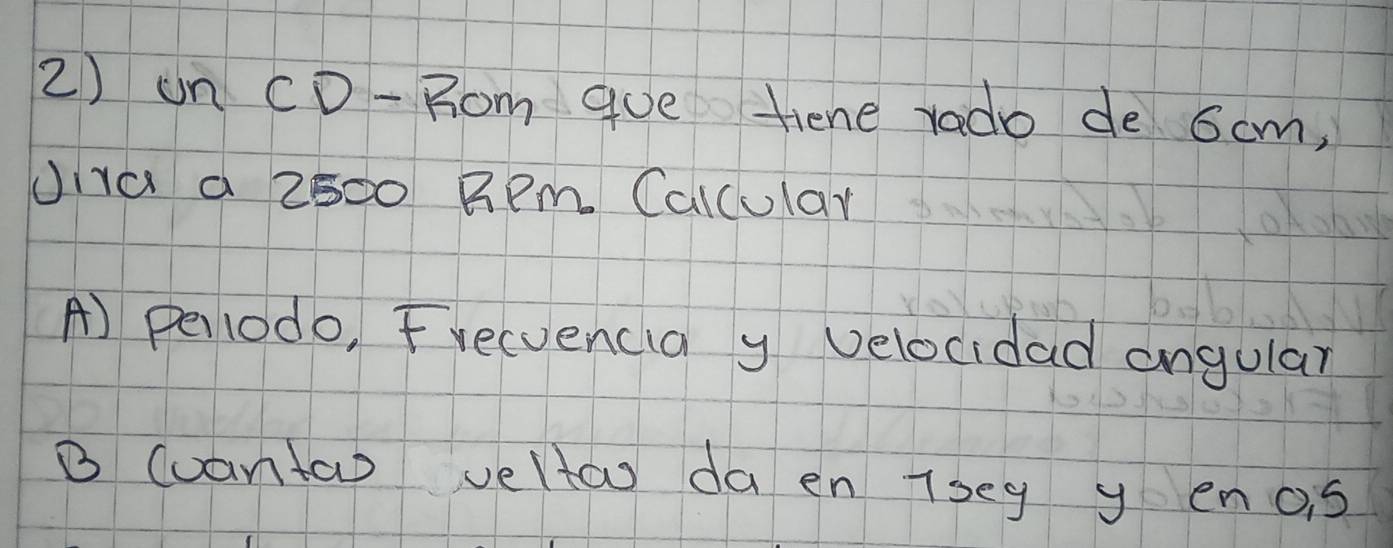 2) un CD-Rom que tiene radio de 6cm,
Jira a 2500 RPm. Calcular
A) periodo, Frecuencia y velocidad angular
B Cuantas veltas da en 1seg y en 0,5